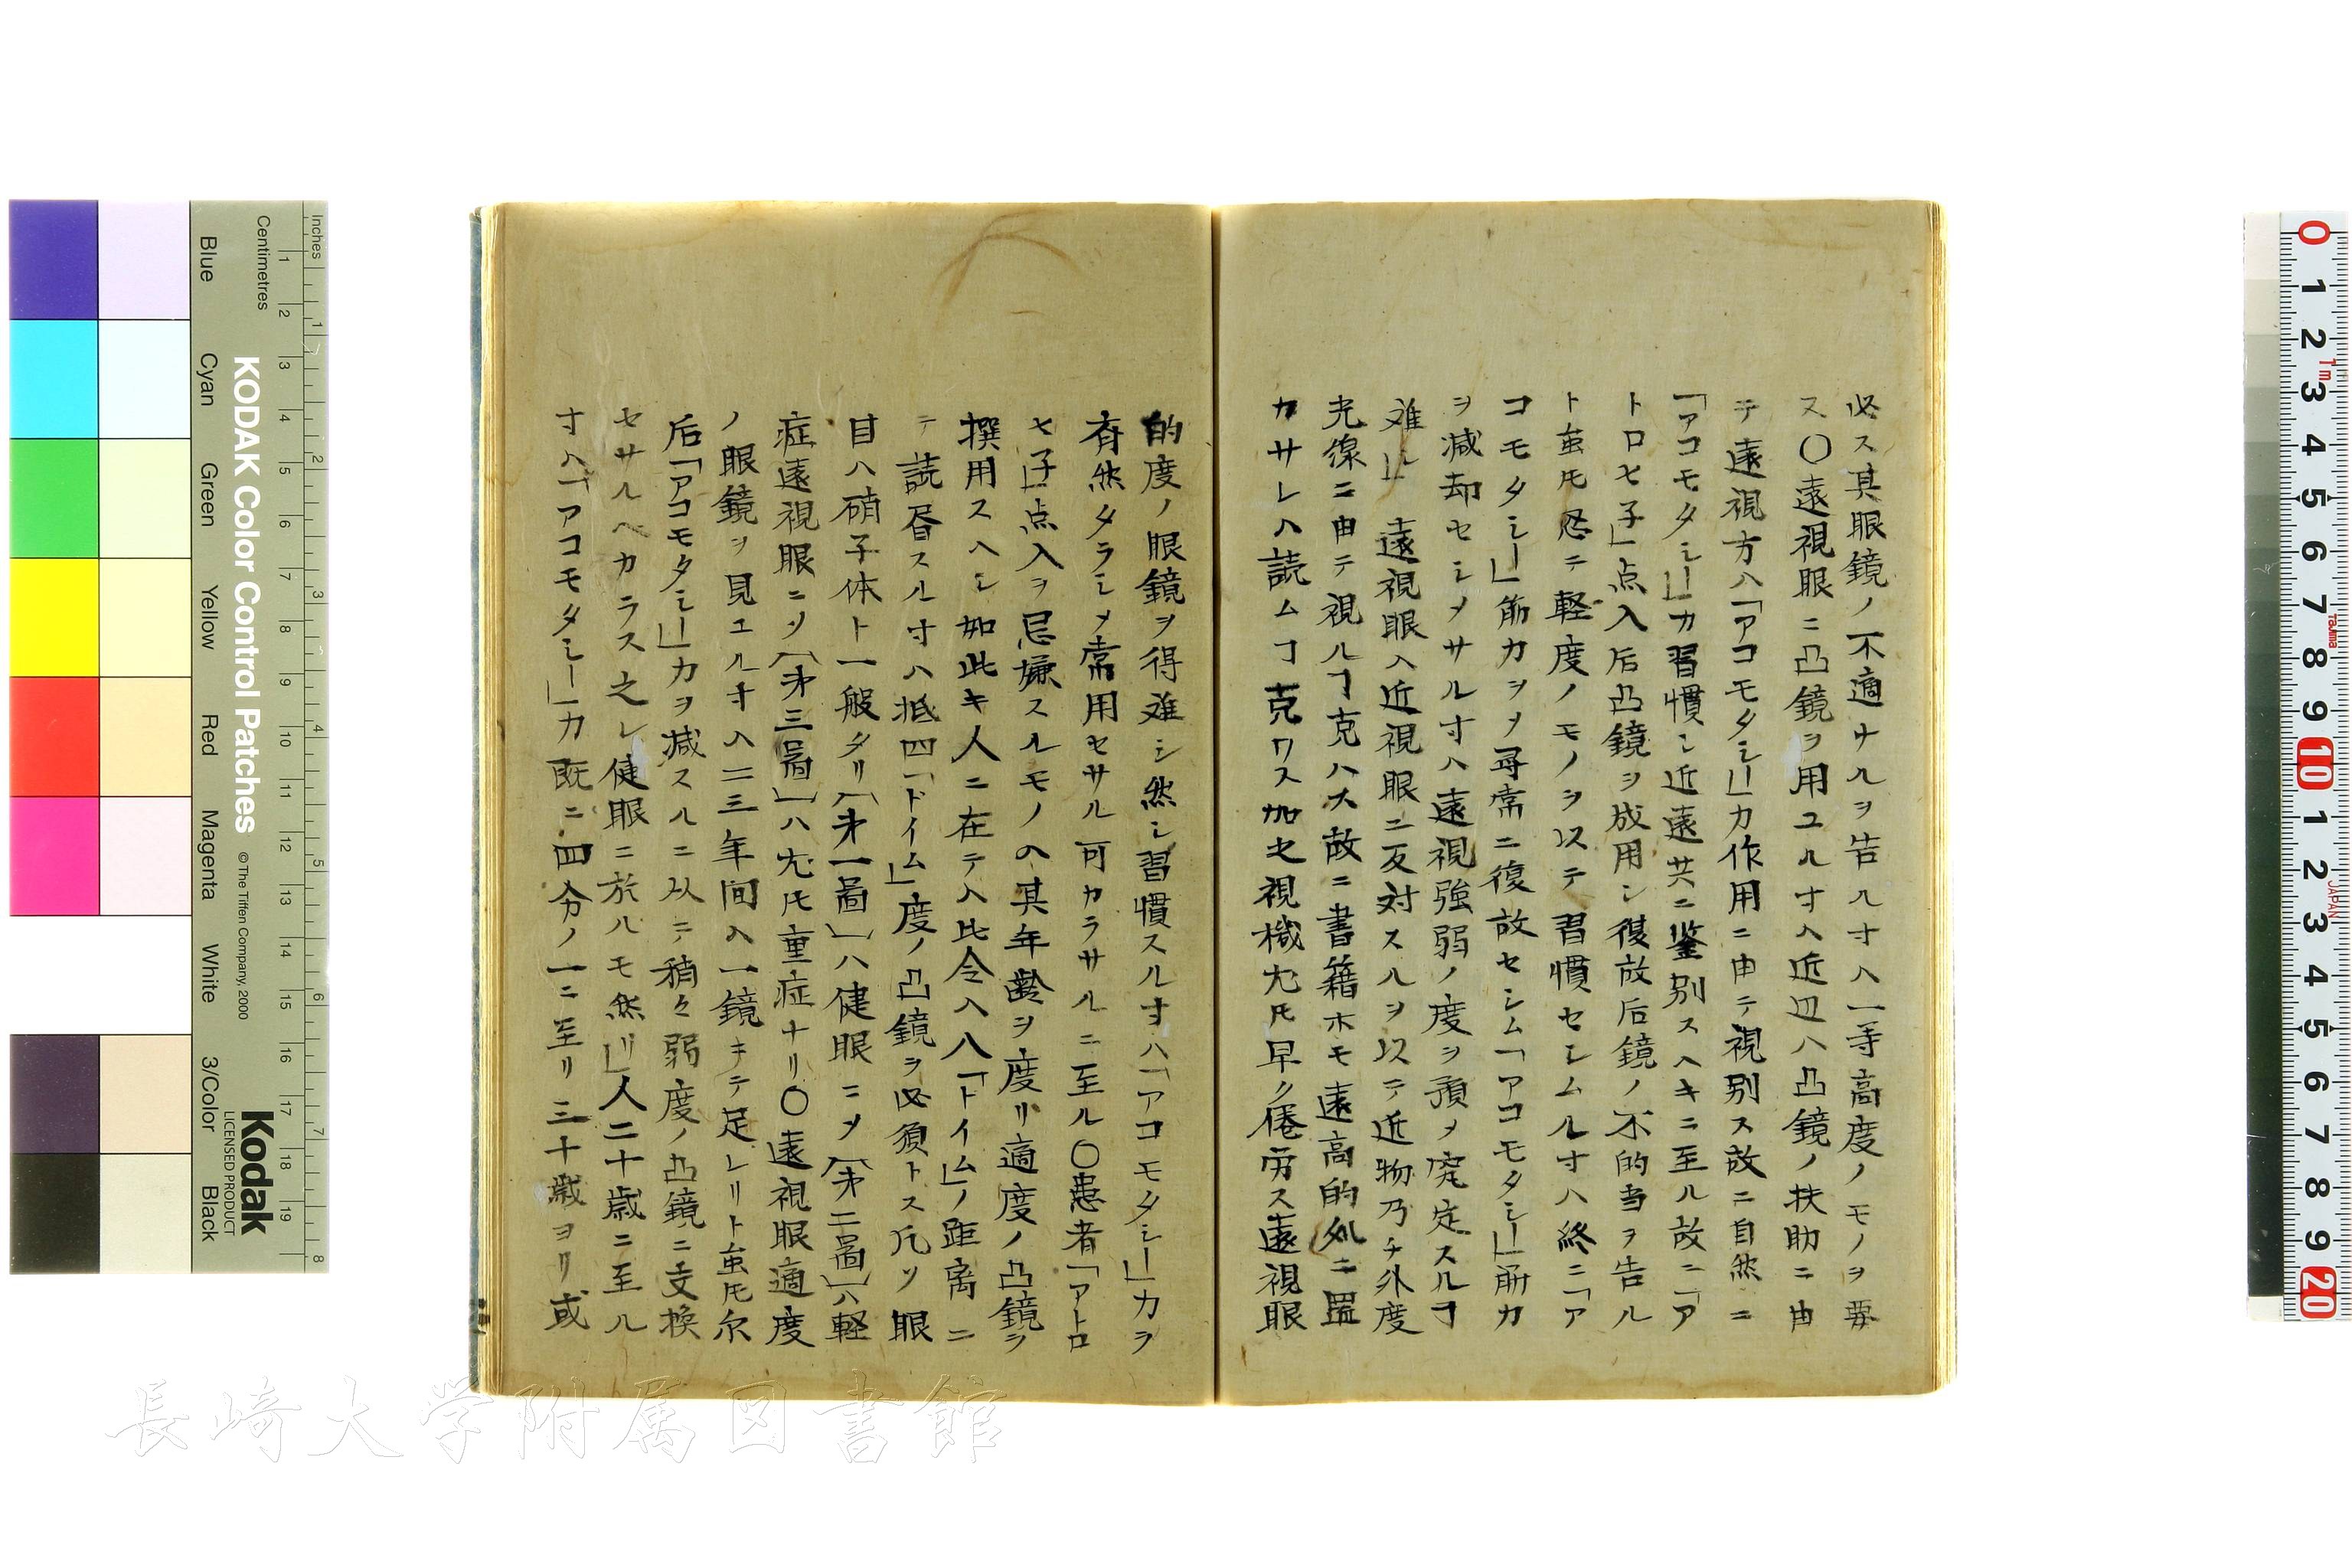 必ス其眼鏡ノ不適ナルヲ告ル寸ハ一等高度ノモノヲ要
ス〇遠視眼ニ凸鏡ヲ用ユル寸ハ近辺ハ凸鏡ノ扶助ニ由
テ遠視方ハ「アコモタシー」力作用ニ由テ視別ス故ニ自然ニ
「アコモタシー」力習慣シ近遠共ニ鑒別スヘキニ至ル故ニ「ア
トロヒ子」点入后凸鏡ヲ成用シ復故后鏡ノ不的当ヲ告ル
ト虽𪜈忍テ軽度ノモノヲ以テ習慣セシムル寸ハ終ニ「ア
コモタシー」筋力ヲ〆尋常ニ復故セシム「アコモタシー」筋力
ヲ減却セシメサル寸ハ遠視強弱ノ度ヲ預〆究定スルヿ
难シ 遠視眼ハ近視眼ニ反対スルヲ以テ近物乃チ外度
光線ニ由テ視ルヿ克ハス故ニ書籍ホモ遠高的処ニ置
カサレハ読ムヿ克ワス加之視機尤𪜈早ク倦労ス遠視眼
的度ノ眼鏡ヲ得难シ然シ習慣スル寸ハ「アコモタシー」力ヲ
有然タラシメ常用セサル可カラサルニ至ル〇患者「アトロ
ヒ子」点入ヲ忌嫌スルモノハ其年齢ヲ度リ適度ノ凸鏡ヲ
撰用スヘシ如此キ人ニ在テハ比令ハ八「ドイム」ノ距离ニ
テ読書スル寸ハ抵四「ドイム」度ノ凸鏡ヲ必須トス凡ソ眼
目ハ硝子体ト一般タリ(才一啚)ハ健眼ニ〆(才二啚)ハ軽
症遠視眼ニソ(才三啚)ハ尤𪜈重症ナリ〇遠視眼適度
ノ眼鏡ヲ見ユル寸ハ二三年间ハ一鏡ニテ足レリト虽𪜈尓
后「アコモタシー」力ヲ減スルニ以テ稍々弱度ノ凸鏡ニ交換
セサルヘカラス之レ健眼ニ於ルモ然リ」人二十歳ニ至ル
寸ハ「アコモタシー」力既ニ四分ノ一ニ至リ三十歳ヨリ或
Inches
Centimetres
KODAK Color Control Patches
©The Tiffen Company, 2000
Kodak
LICENSED PRODUCT
Blue
Cyan
Green
Yellow
Red
Magenta
White
3/Color
Black
長崎大学附属図書館